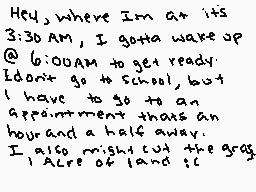 Hey, where Im at its
3:30 AM, I gotta wake up
@ 6:00AM to get ready.
I dont go to school, but
I have to go to an
appointment thats an
hour and a half away.
I also might cut the gras
1 Acre of land :C